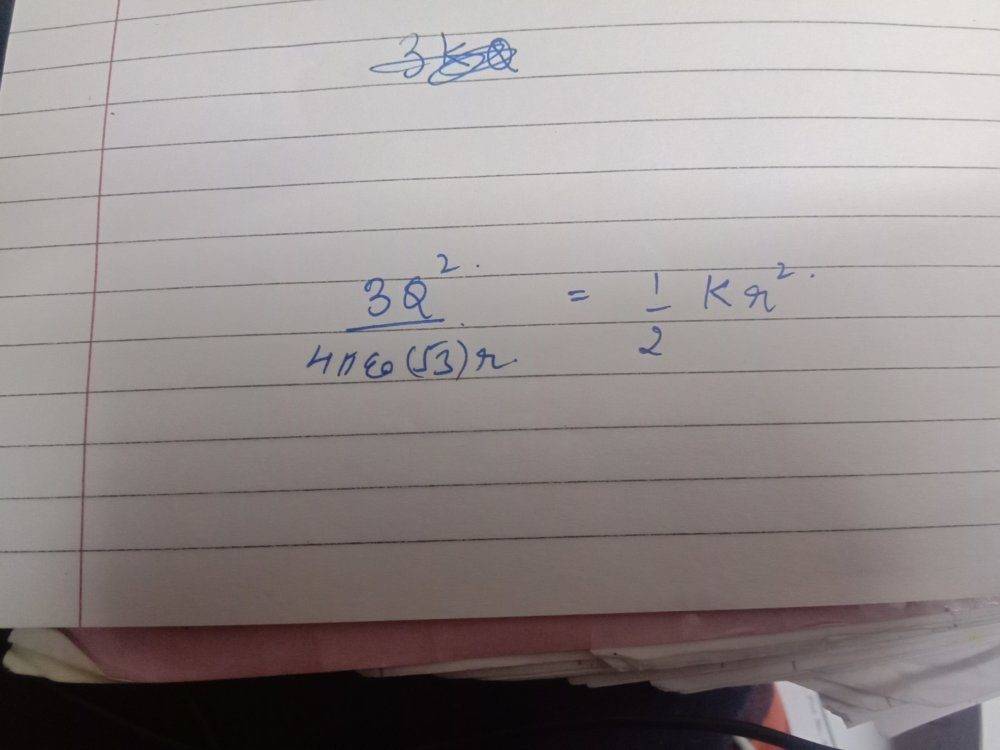 3Q² / 4πε₀(√3)r = 1/2 Kr²